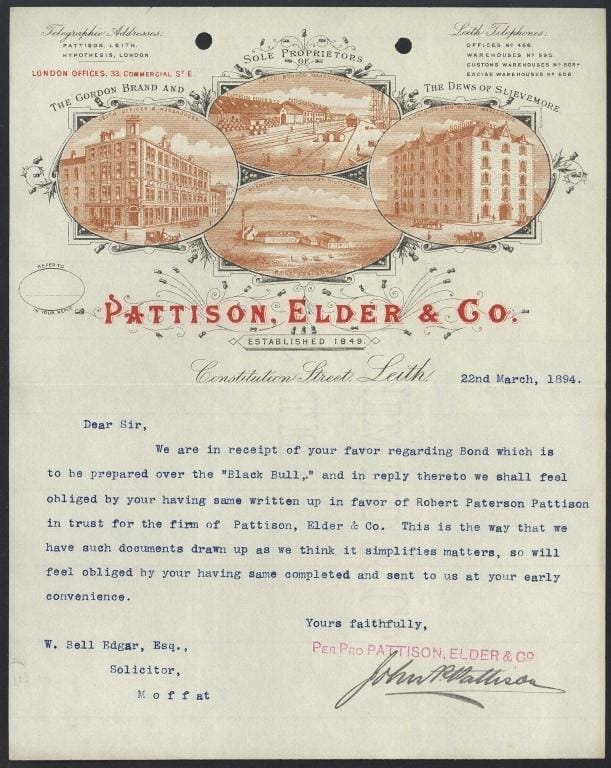 Telegraphic Addresses:
PATTISON, LEITH.
HYPOTHESIS, LONDON.
LONDON OFFICES, 33, COMMERCIAL ST E.
Leith Telephones:
OFFICES No 456.
WAREHOUSES No 595.
EXCISE WAREHOUSES No 606.
SOLE PROPRIETORS
OF
THE GORDON BRAND AND
THE DEWS OF SLIEVEMORE.
LEITH OFFICES & WAREHOUSES
BONDED WAREHOUSES
REFER TO
IN YOUR REPLY
PATTISON, ELDER & Co.
ESTABLISHED 1849.
Constitution Street, Leith,
22nd March, 1894.
Dear Sir,
We are in receipt of your favor regarding Bond which is
to be prepared over the "Black Bull," and in reply thereto we shall feel
obliged by your having same written up in favor of Robert Paterson Pattison
in trust for the firm of Pattison, Elder & Co. This is the way that we
have such documents drawn up as we think it simplifies matters, so will
feel obliged by your having same completed and sent to us at your early
convenience.
Yours faithfully,
PER PRO PATTISON, ELDER & Co
John R. Pattison
W. Bell Edgar, Esq.,
Solicitor,
Moffat